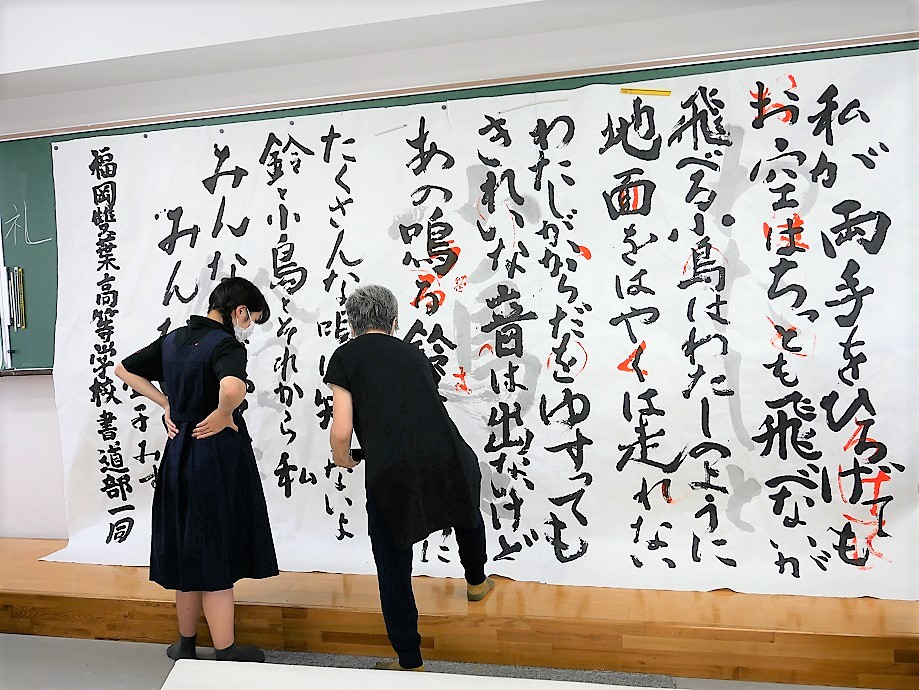 私が両手をひろげても
お空はちっとも飛べないが
飛べる小鳥はわたしのように
地面をはやくは走れない
わたしがからだをゆすっても
きれいな音は出ないけど
あの鳴る鈴 に
たくさんな唄は知 ないよ
鈴と小鳥とそれから私
みんな
みん
子みすゞ
福岡雙葉高等学校書道部一同
札